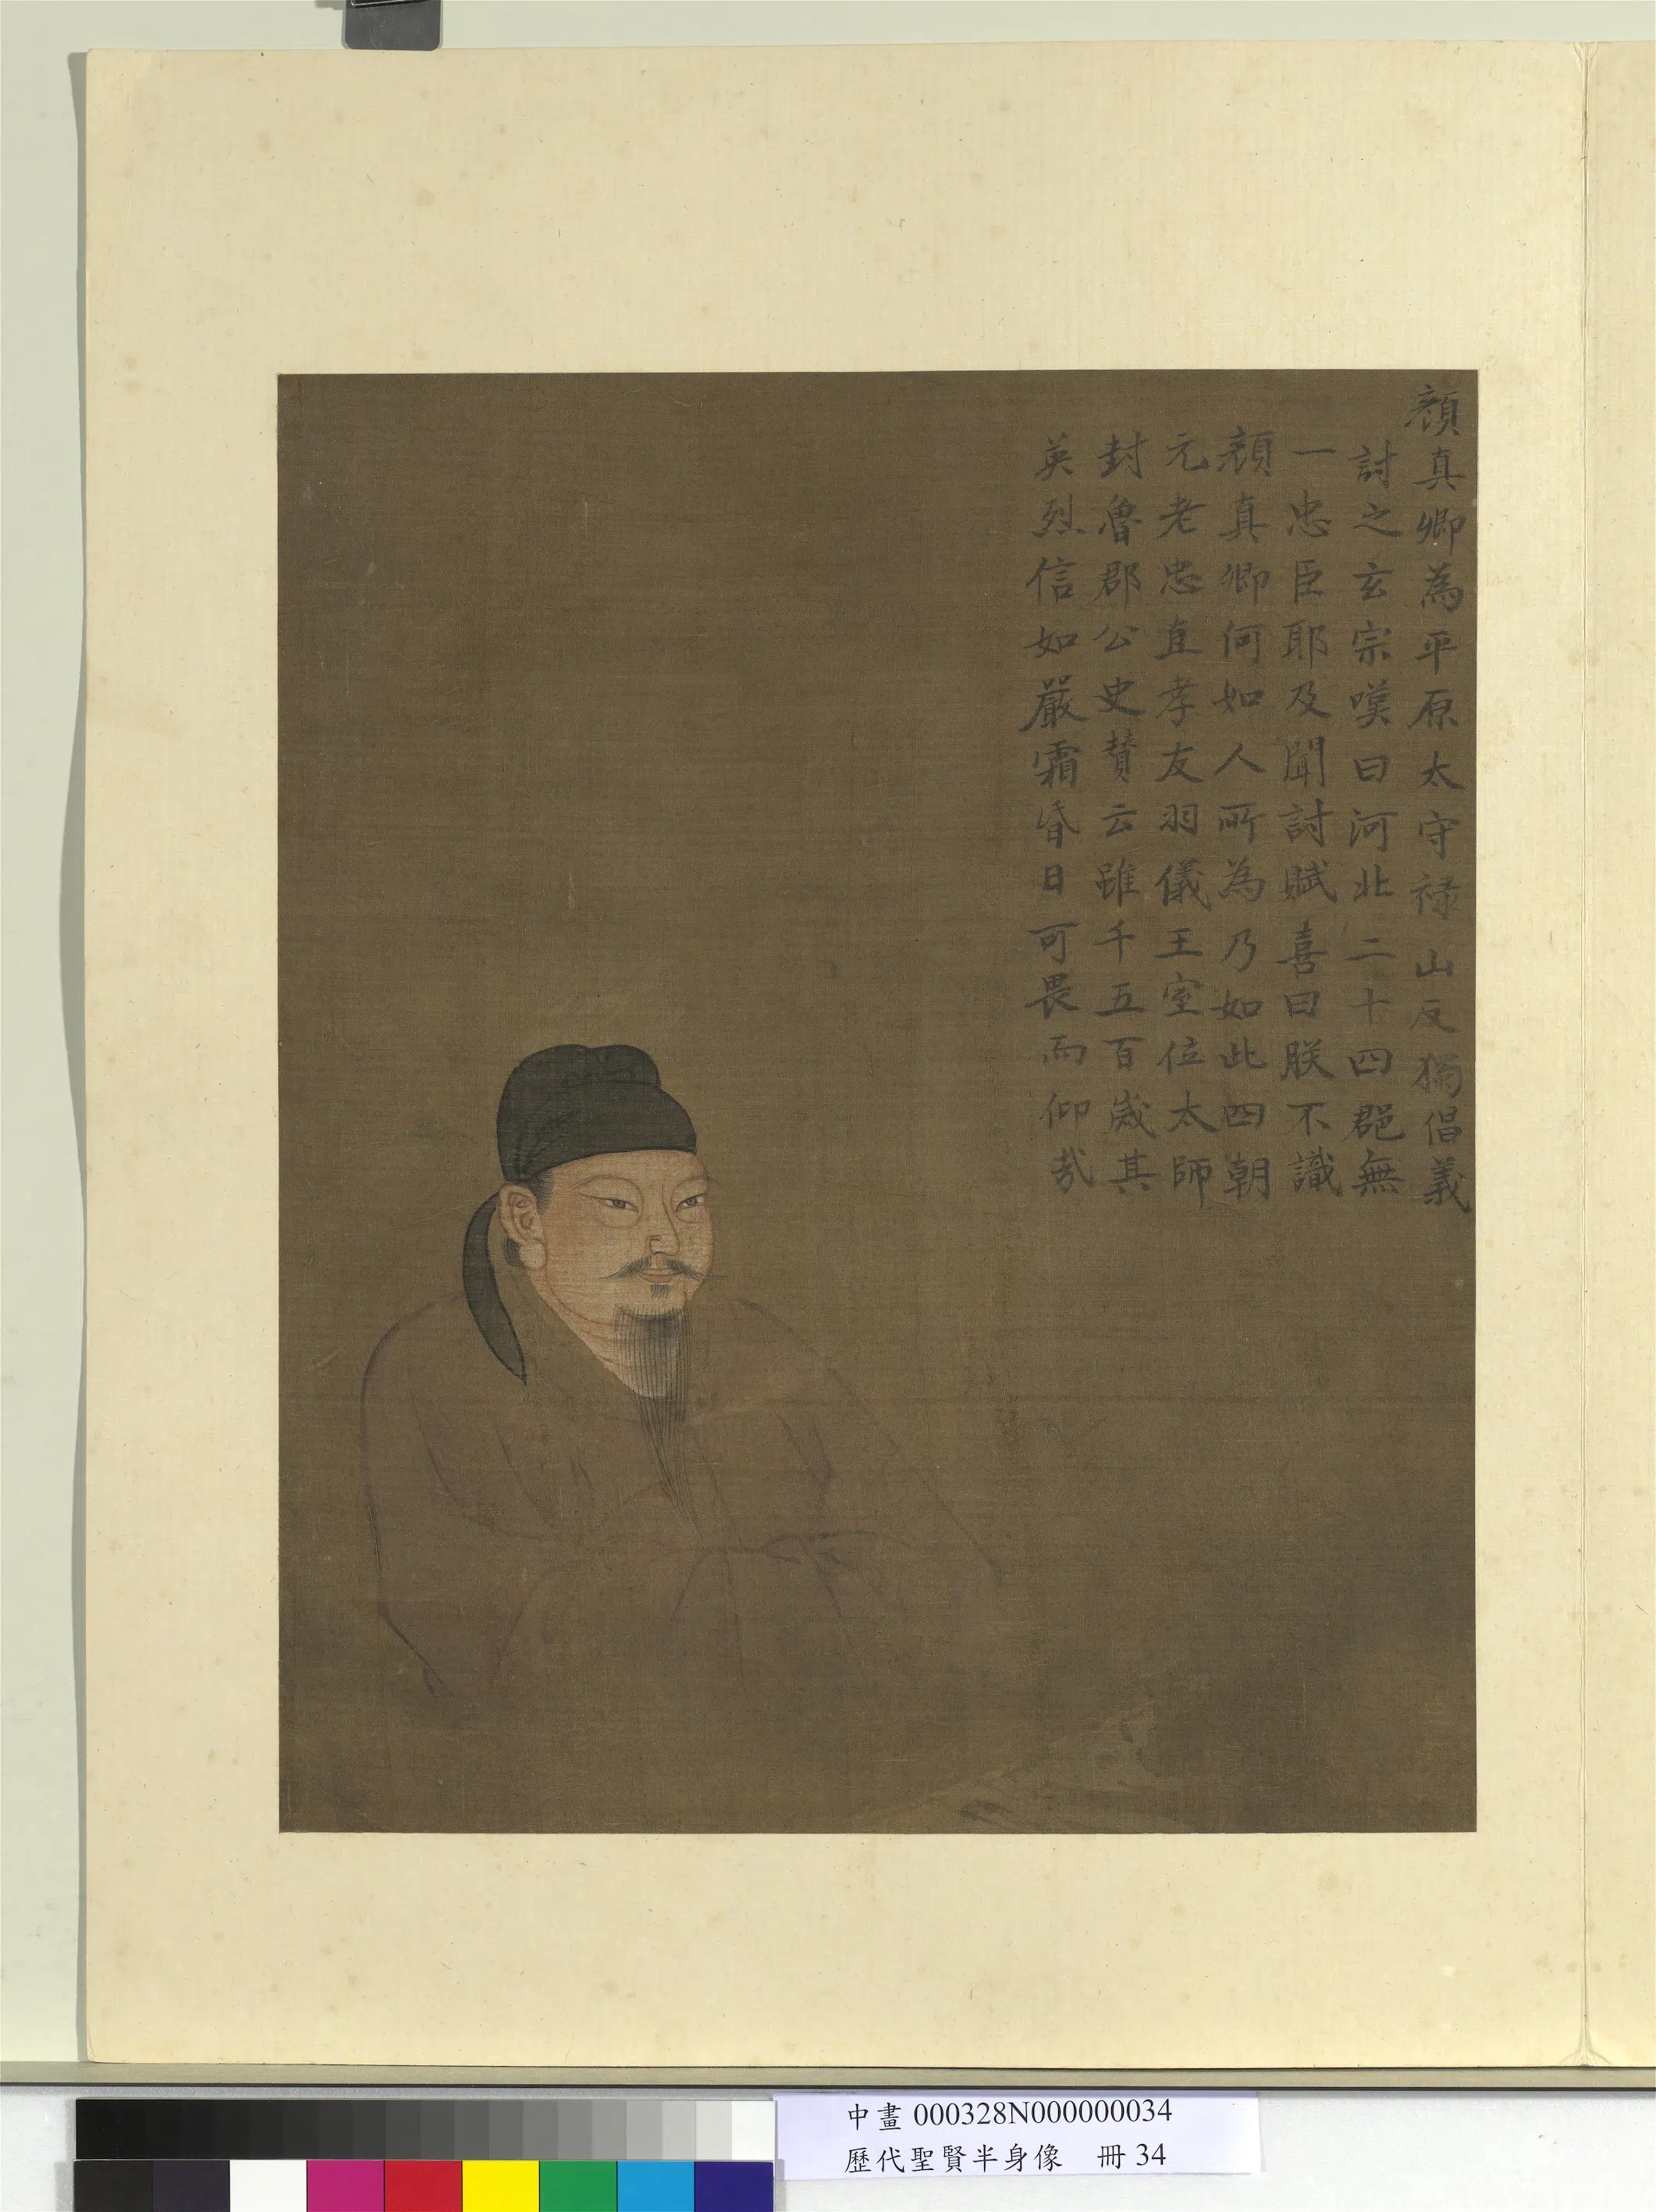 顏真卿為平原太守祿山反獨倡義
討之玄宗嘆曰河北二十四郡無
一忠臣耶及聞討賊喜曰朕不識
顏真卿何如人所為乃如此四朝
元老忠直孝友羽儀王室位太師
封魯郡公史贊云雖千五百歲其
英烈信如嚴霜烈日可畏而仰哉
中畫 000328N000000034
歷代聖賢半身像 冊 34